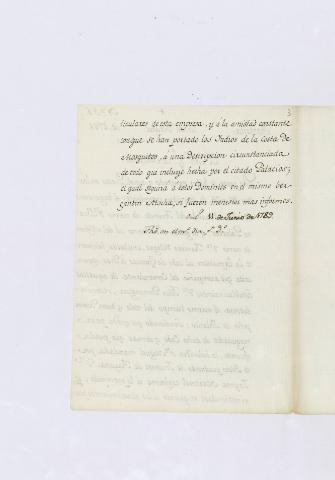 3
ticulares de esta empresa, y á la amistad constante
con que se han portado los Indios de la Costa de
Mosquitos, a una Descripcion circunstanciada
de todo que incluye hecha por el citado Palacios;
el qual seguirá á estos Dominios en el mismo ber-
gantin si fuesen menester mas informes.
11 de Junio de 1789.
en el dia